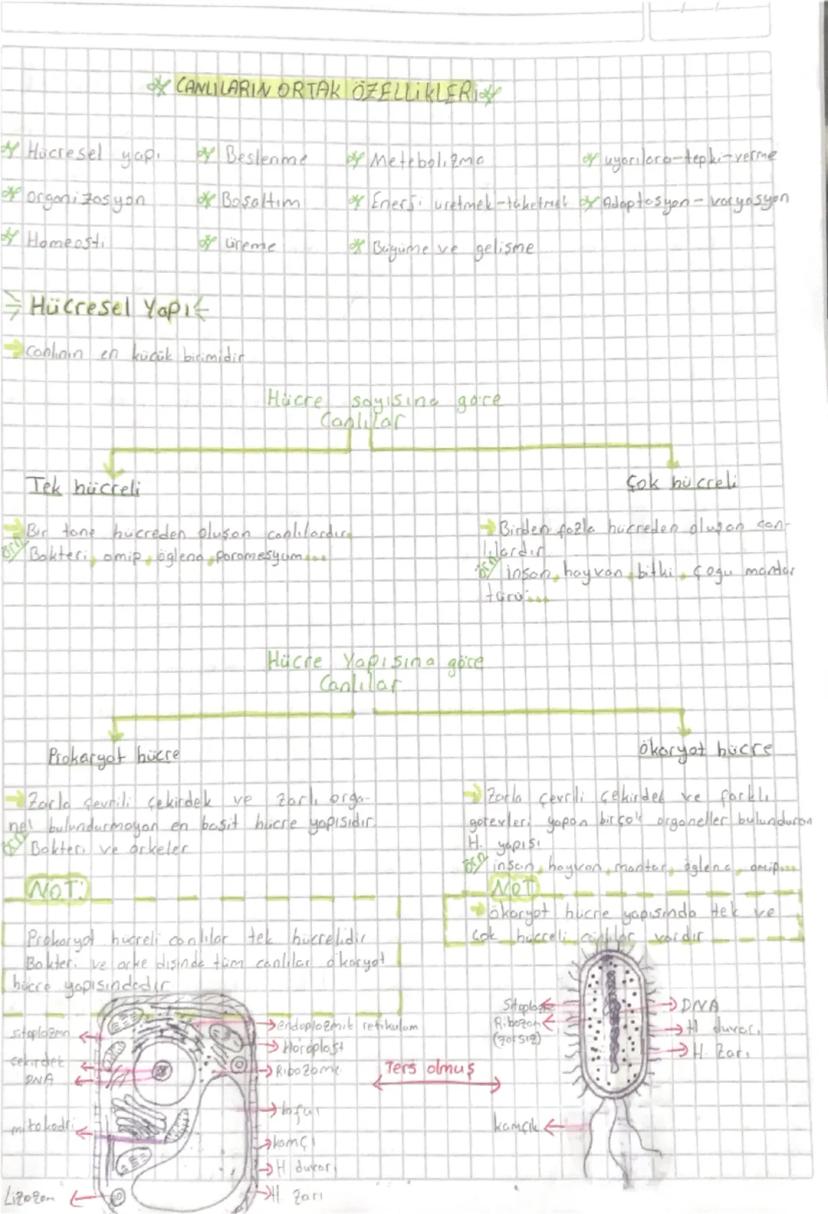 CANLILARIN ORTAK ÖZELLİKLERİ
Hücresel yapı
Beslenme
Metebolizma
uyarılara-tepki-verme
organizasyon
Boşaltım
Enerji üretmek-tüketmek
Adaptasyon-varyasyon
Homeosti
üreme
Büyüme ve gelişme
Hücresel Yapı
canlının en küçük birimidir
Hücre sayısına göre
Canlılar
Tek hücreli
Çok hücreli
Bir tane hücreden oluşan canlılardır.
Örn Bakteri, amip, öglena, paramesyum...
Birden fazla hücreden oluşan can-
lılardır
Örn insan, hayvan, bitki, çoğu mantar
türü...
Hücre Yapısına göre
Canlılar
Prokaryot hücre
Ökaryot hücre
Zarla çevrili çekirdek ve zarlı orga-
nel bulundurmayan en basit hücre yapısıdır
Örn Bakteri ve arkeler
Zarla çevrili çekirdek ve farklı
görevleri yapan birçok organeller bulunduran
H. yapısı
Örn insan, hayvan, mantar, öglena, amip...
NOT:
Prokaryot hücreli canlılar tek hücrelidir
Bakteri ve arke dışında tüm canlılar ökaryot
hücre yapısındadır
NOT
Ökaryot hücre yapısında tek ve
çok hücreli canlılar vardır
sitoplazen
çekirdek
DNA
mitokodri
Lizozon
endoplozmik retikulom
kloroplast
Ribozome
koful
kamçı
H duvarı
H zarı
Ters olmuş
Sitoplaz
Ribozon
(zarsız)
kamçık
DNA
H duvarı
H Zarı